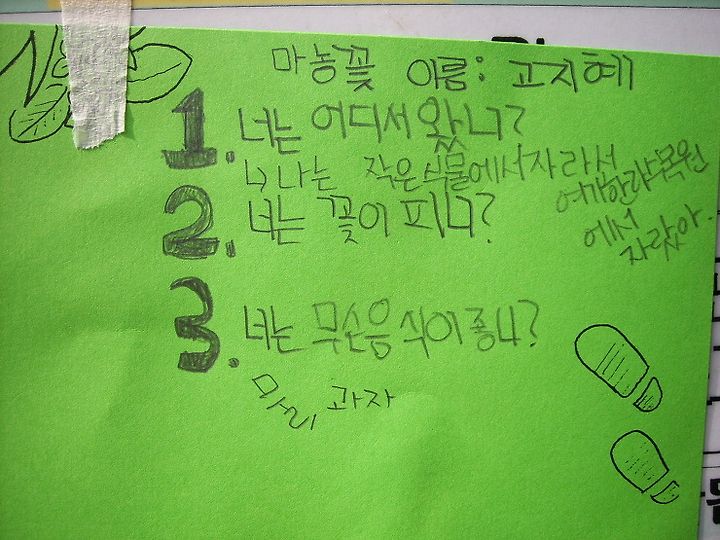 마농꽃 이름: 고지혜
1. 너는 어디서 왔니?
↳ 나는 작은식물에서자라서
여기한라수목원
에서
자랐아.
2. 너는 꽃이 피니?
3. 너는 무슨음식이좋니?
과자